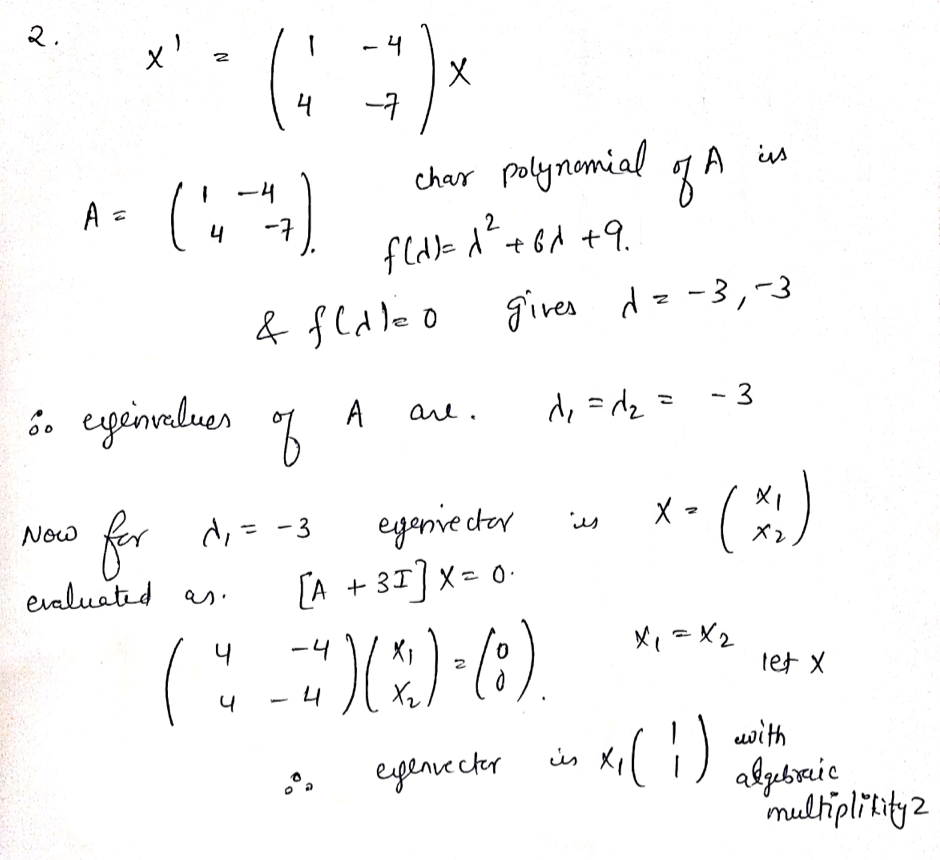 2.
x' = ( 1 -4
4 -7 ) x
A = ( 1 -4
4 -7 ). char polynomial of A is
f(λ) = λ² + 6λ + 9.
& f(λ) = 0 gives λ = -3, -3
∴ eigenvalues of A are. λ₁ = λ₂ = -3
Now for λ₁ = -3 eigenvector is X = ( x₁
x₂ )
evaluated as. [A + 3I] X = 0.
( 4 -4
4 -4 ) ( x₁
x₂ ) = ( 0
0 ). x₁ = x₂
let x
∴ eigenvector is x₁ ( 1
1 ) with
algebraic
multiplikity 2